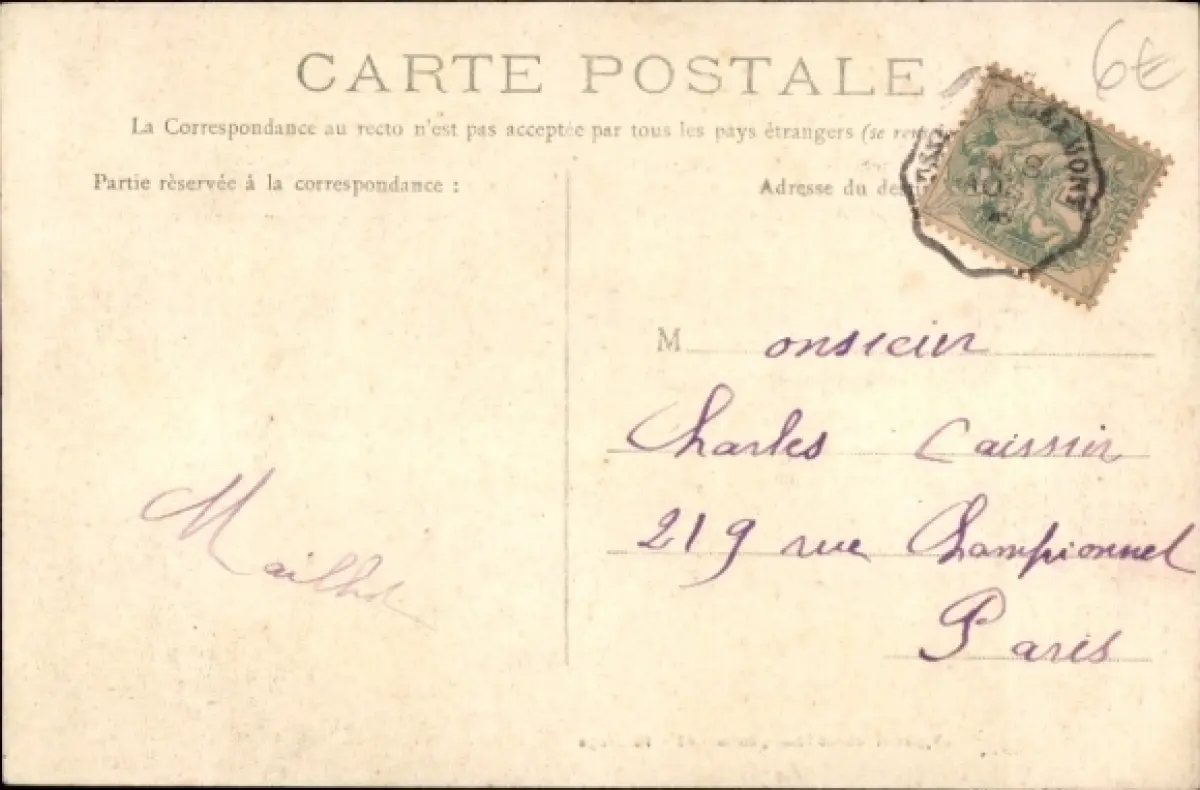 CARTE POSTALE
6€
La Correspondance au recto n'est pas acceptée par tous les pays étrangers (se
Partie réservée à la correspondance :
Adresse du
CLERMONT
8
Monsieur
Charles
219 rue Championnet
Paris
Mailhot